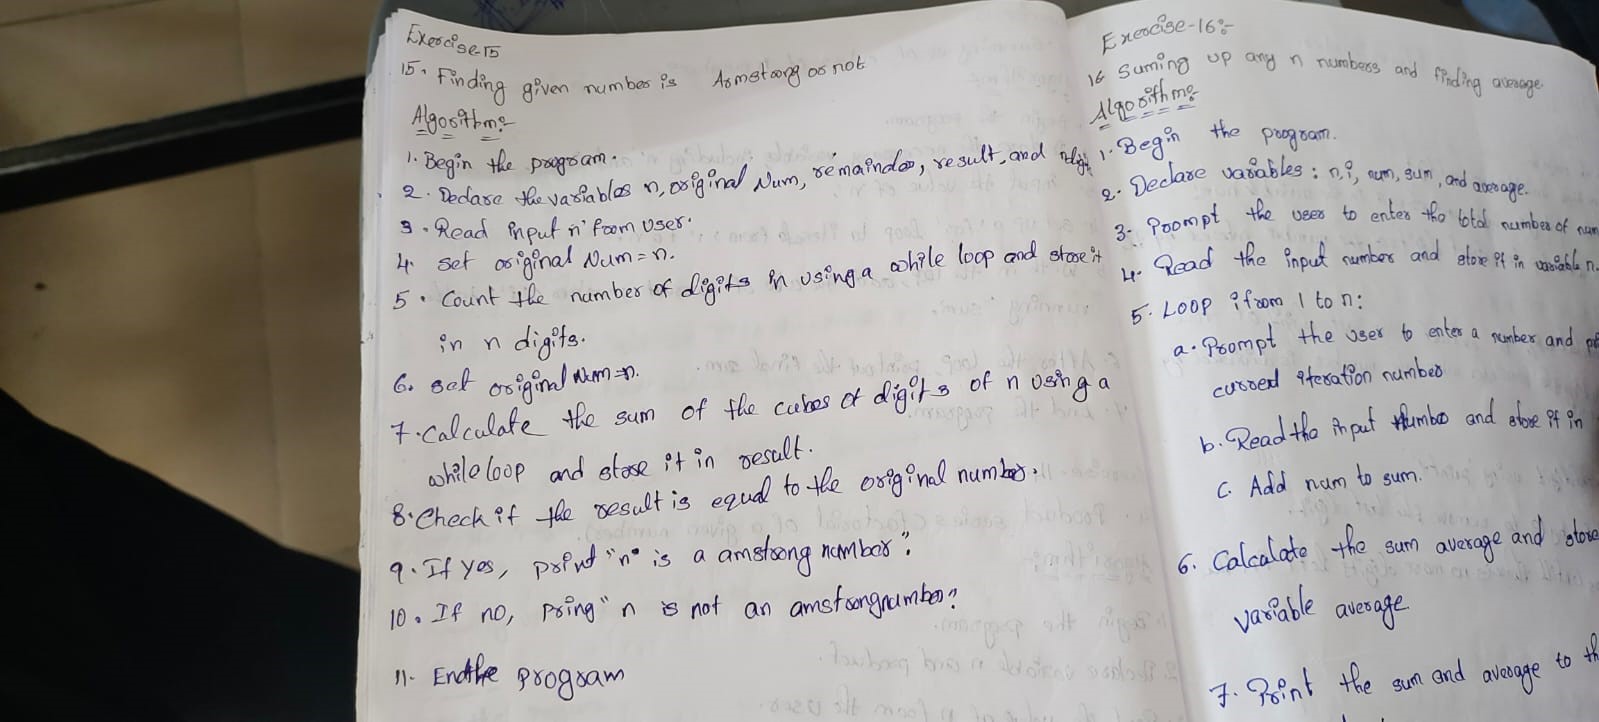 Exercise-15
15. Finding given number is Armstrong or not
Algorithm:-
1. Begin the program.
2. Declare the variables n, original Num, remainder, result, and
3. Read input 'n' from user.
4. set original Num = n.
5. Count the number of digits in using a while loop and store it
in n digits.
6. set original Num = n.
7. Calculate the sum of the cubes of digits of n using a
while loop and store it in result.
8. Check if the result is equal to the original number.
9. If yes, print "n" is a amstrong number".
10. If no, pring "n is not an amstrongnumber"
11. End the program
Exercise-16:-
16 Suming up any n numbers and finding average
Algorithm:-
1. Begin the program.
2. Declare variables : n, i, num, sum, and average.
3. Prompt the user to enter the total number of num
4. Read the input number and store it in variable n.
5. LOOP i from 1 to n:
a. Prompt the user to enter a number and
current iteration number
b. Read the input number and store it in
c. Add num to sum.
6. Calculate the sum average and store
variable average
7. Print the sum and average to th